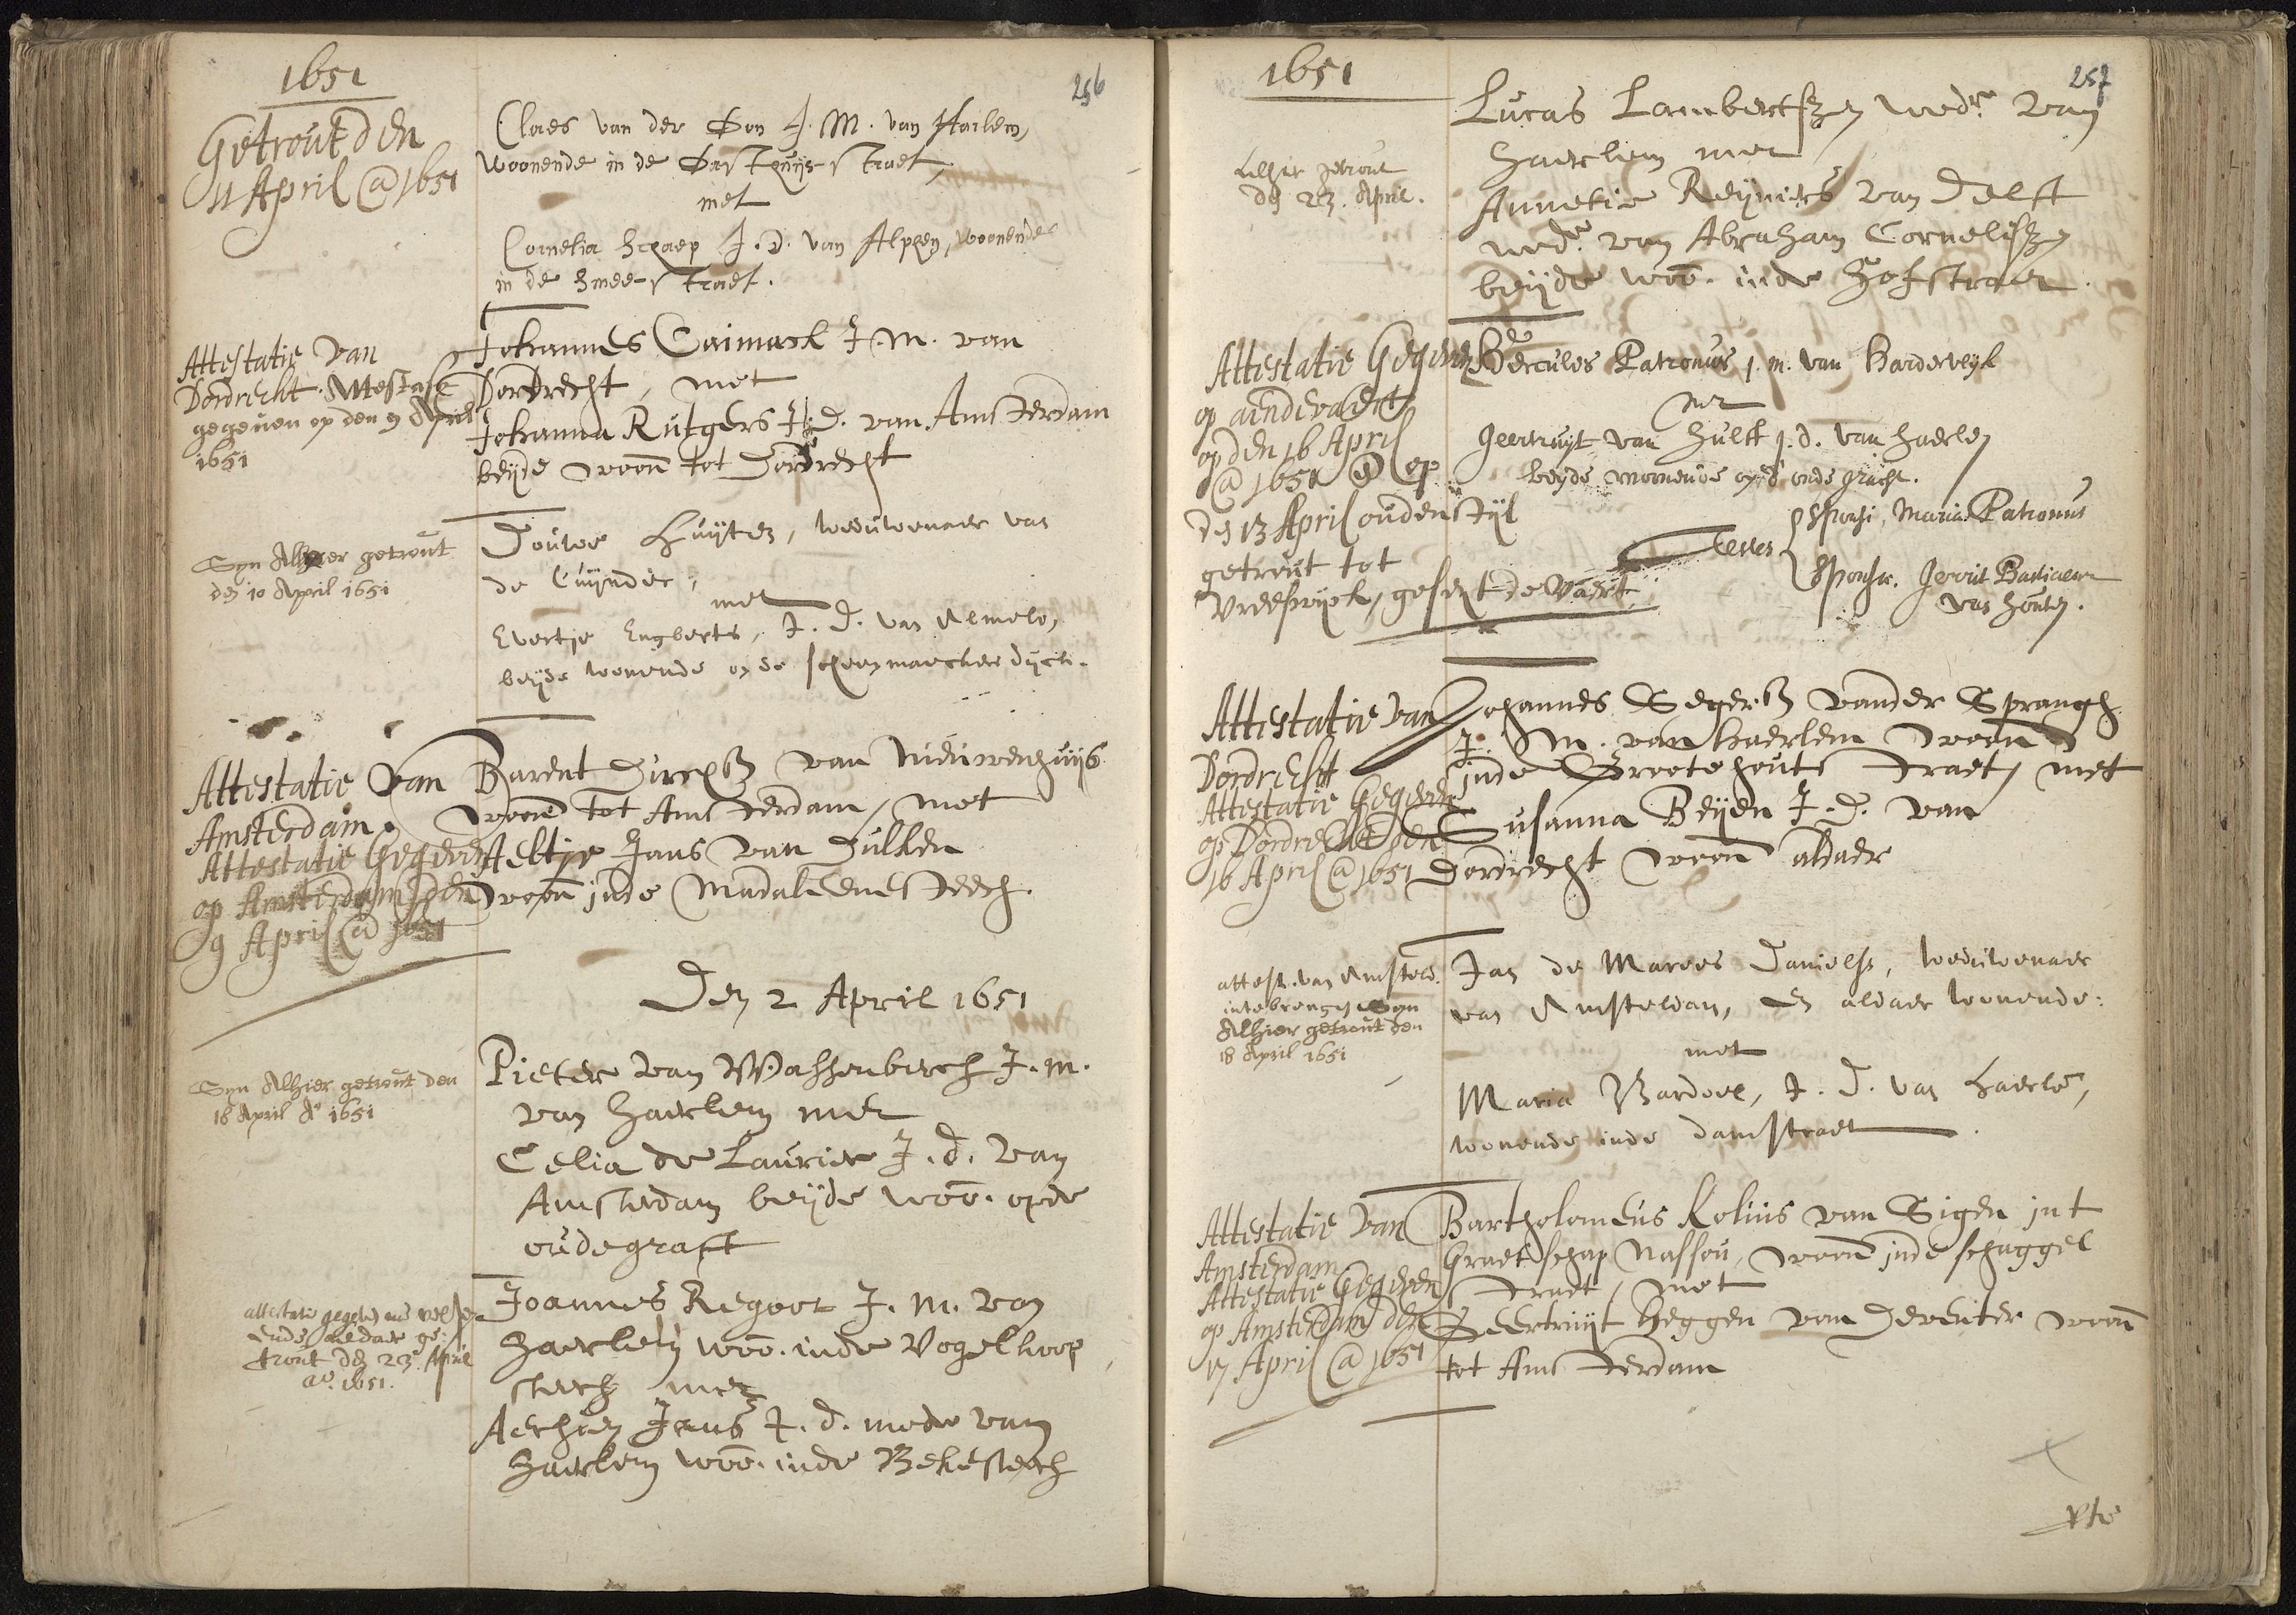 1651
256
Getrout den
11 April @ 1651
Claes van der Son J. M. van Harlem,
woonende in de Gasthuys straet,
met
Cornelia Schaep J. D. van Alphen, woonende
in de Smee straet.
Attestatie van
Dordrecht. Attestatie
gegeuen op den 9 April
1651
Johannes Caimack J. M. van
Dordrecht, met
Johanna Rutgers J. D. van Amsterdam
beyde woon tot Dordrecht
Syn Alhier getrout
den 10 April 1651
Douwe Luijtes, weduwenaer van
de Cuijnder,
met
Evertje Engberts, J. D. van Almelo,
beijde wonende op de scheepmaeckers dyck.
Attestatie van
Amsterdam.
Attestatie Gegeven
op Amsterdam den
9 April @ 1651
Barent Dircxsz van Nieuwenhuijs
woon tot Amsterdam, met
Aeltje Jans van Dulken
woon inde Madaleene steech.
Den 2 April 1651
Syn Alhier getrout den
18 April Ao 1651
Pieter van Wassenberch J. M.
van Haerlem met
Celia de Laurier J. d. van
Amsterdam beijde woo. opde
oudegraft
attestatie gegeven
ende aldaer ge-
trout den 23 April
ao. 1651.
Joannes Regoot J. M. van
Haerlem woo. inde Vogelkoop
steech met
Aechien Jans J. d. mede van
Haerlem woo. inde Bekesteech
1651
257
Alhier getrout
den 23. April.
Lucas Lambertszen wedr. van
Haerlem met
Annetie Reyniers van Delft
wede. van Abraham Corneliszen
beijde woo. inde Hofstraet.
Attestatie Gegeven
op aende vaert
op den 16 April
@ 1651 op
den 13 April ouden stijl
getrout tot
Vreeswyck, geseyt de Vaert
Hercules Patronus j. m. van Harderwijk
met
Geertruyt van Hulst j. d. van Haerlem
beyde woonende op d' oude gracht.
Testes
Sponsi, Maria Patronus
Sponsae. Gerrit Bastiaen
van Houten.
Attestatie van
Dordrecht
Attestatie Gegeven
op Dordrecht den
16 April @ 1651
Johannes Segersz vander Sprangh
J. M. van Haerlem woon
inde Groote hout straet, met
Susanna Beyen J. D. van
Dordrecht woon aldaer
attest. van Amsterd.
inte brengen Syn
Alhier getrout den
18 April 1651
Jan de Marees Danielsz, weduwenaer
van Amsteldam, en aldaer wonende:
met
Maria Bardoel, J. D. van Haerle,
wonende inde damstraet
Attestatie van
Amsterdam
Attestatie Gegeven
op Amsterdam den
17 April @ 1651
Bartholomeus Kolius van Sigen int
Graetschap Nassou, woon inde schaggel
straet, met
Geertruijt Heggen van Deventer woon
tot Amsterdam